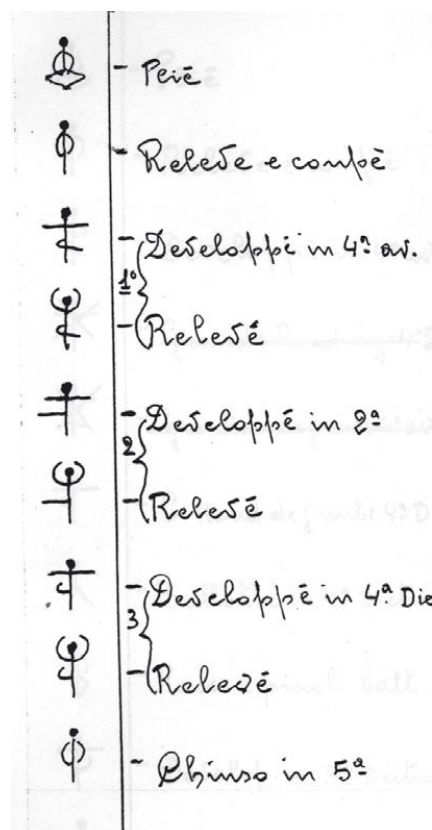 - Peié
- Relevé e coupé
1º
- Developpé in 4ª av.
- Relevé
2
- Developpé in 2ª
- Relevé
3
- Developpé in 4ª Die
- Relevé
- Chiuso in 5ª